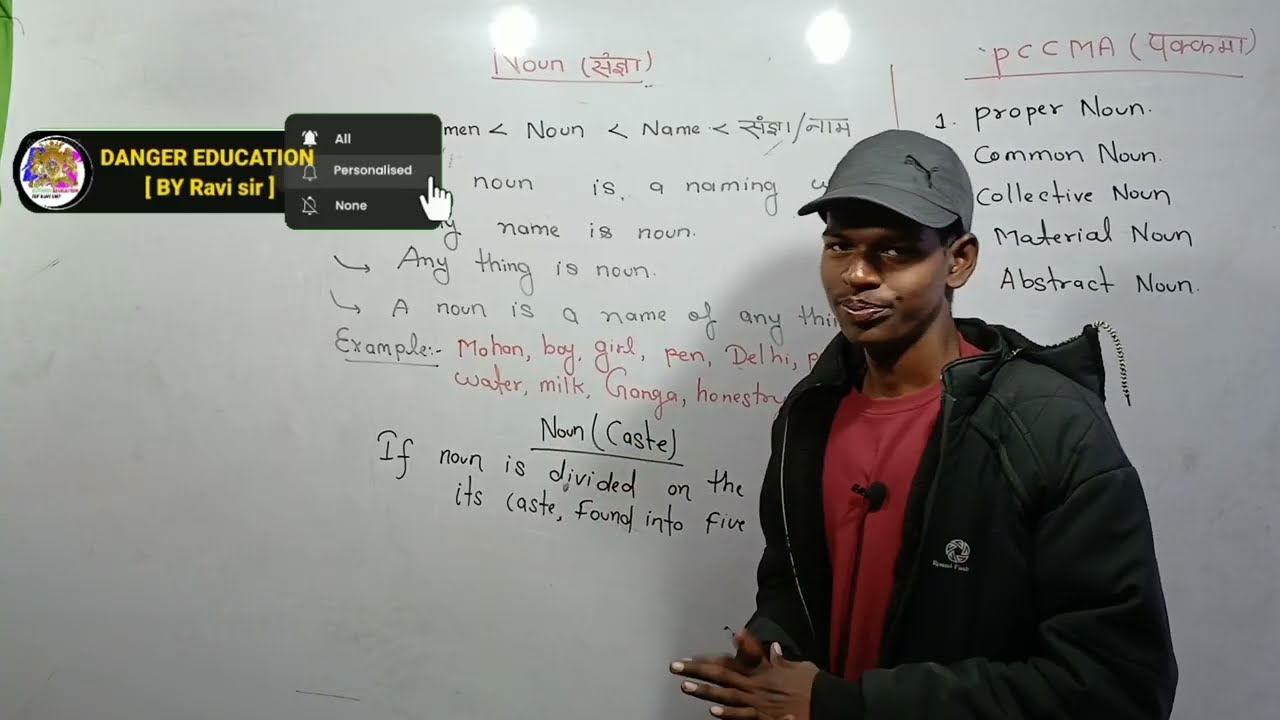 Noun (संज्ञा)
men < Noun < Name < संज्ञा/नाम
noun is a naming
name is noun.
Any thing is noun.
A noun is a name of any
Example:- Mohan, boy, girl, pen, Delhi,
water, milk, Ganga, honestry
Noun (Caste)
If noun is divided on the
its caste, found into five
PCCMA (पक्कमा)
1. proper Noun.
Common Noun.
Collective Noun
Material Noun
Abstract Noun.
DANGER EDUCATION
[ BY Ravi sir ]
All
Personalised
None